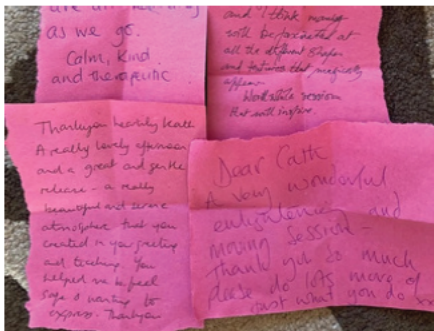 are all
as we go.
Calm, Kind
and therapeutic
and I think many
will be fascinated at
all the different shapes
and textures that magically
appear.
Worthwhile session
that will inspire.
Thankyou heartily
A really lovely afternoon
and a great and gentle
release - a really
beautiful and serene
atmosphere that you
created in your greeting
and teaching. You
helped me to feel
safe & wanting to
express. Thankyou
Dear Cath
A very wonderful
enlightening and
moving session -
Thank you so much
please do lots more of
just what you do xx